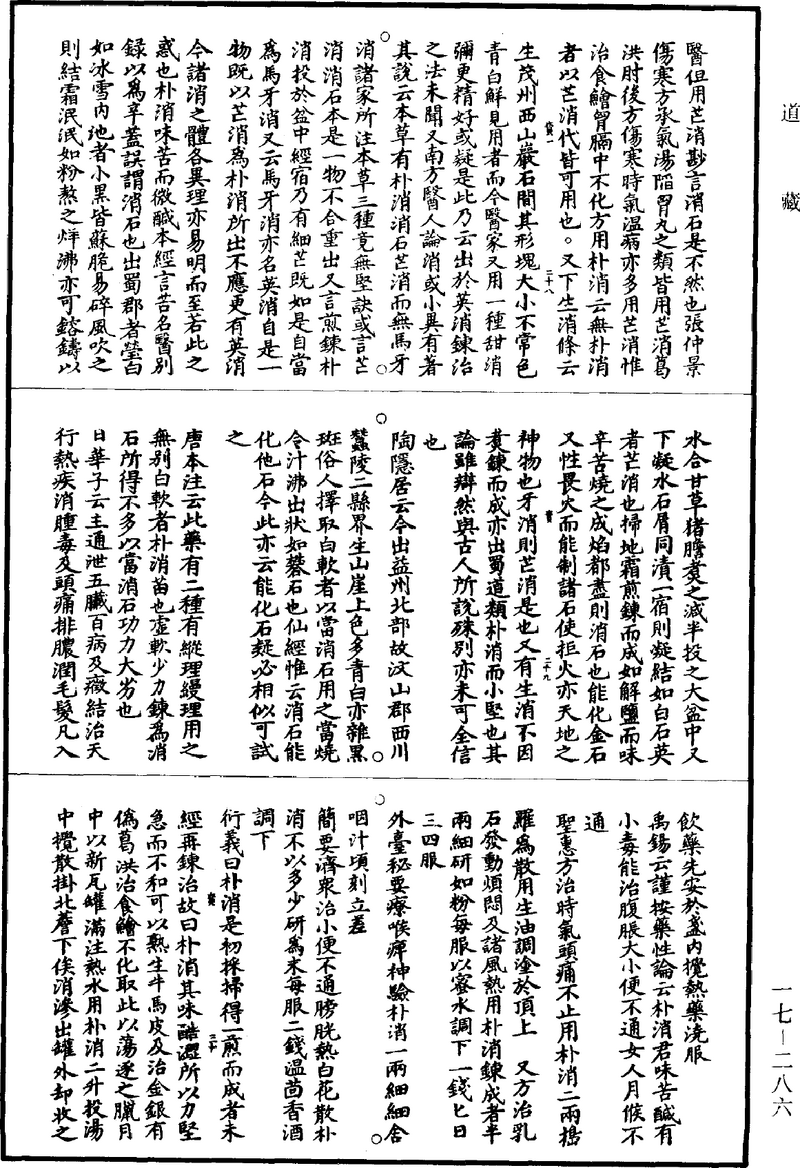 道藏
醫但用芒消尠言消石是不然也張仲景
傷寒方承氣湯陷胷丸之類皆用芒消葛
洪肘後方傷寒時氣溫病亦多用芒消惟
治食鱠胷膈中不化方用朴消云無朴消
者以芒消代皆可用也。又下生消條云
寶一
二十八
生茂州西山巖石間其形塊大小不常色
青白鮮見用者而今醫家又用一種甜消
彌更精好或疑是此乃云出於英消鍊治
之法未聞又南方醫人論消或小異有著
其說云本草有朴消消石芒消而無馬牙
消諸家所注本草三種竟無堅訣或言芒
消消石本是一物不合重出又言煎鍊朴
消投於盆中經宿乃有細芒既如是自當
爲馬牙消又云馬牙消亦名英消自是一
物既以芒消爲朴消所出不應更有英消
今諸消之體各異理亦易明而至若此之
惑也朴消味苦而微鹹本經言苦名醫別
録以爲辛蓋誤謂消石也出蜀郡者瑩白
如冰雪内地者小黑皆蘇脆易碎風吹之
則結霜泯泯如粉熬之烊沸亦可鎔鑄以
水合甘草猪膽煑之減半投之大盆中又
下凝水石屑同漬一宿則凝結如白石英
者芒消也掃地霜煎鍊而成如解鹽而味
辛苦燒之成焰都盡則消石也能化金石
又性畏火而能制諸石使拒火亦天地之
寶
二十九
神物也牙消則芒消是也又有生消不因
煑鍊而成亦出蜀道類朴消而小堅也其
論雖辯然與古人所說殊別亦未可全信
也
陶隱居云今出益州北部故汶山郡西川
蠶陵二縣界生山崖上色多青白亦雜黑
斑俗人擇取白軟者以當消石用之當燒
令汁沸出狀如礬石也仙經惟云消石能
化他石今此亦云能化石疑必相似可試
之
唐本注云此藥有二種有縱理縵理用之
無別白軟者朴消苗也虛軟少力鍊爲消
石所得不多以當消石功力大劣也
日華子云主通泄五臟百病及癥結治天
行熱疾消腫毒及頭痛排膿潤毛髮凡入
飲藥先安於盞内攪熱藥澆服
禹錫云謹按藥性論云朴消君味苦鹹有
小毒能治腹脹大小便不通女人月候不
通
聖惠方治時氣頭痛不止用朴消二兩擣
羅爲散用生油調塗於頂上　又方治乳
石發動煩悶及諸風熱用朴消鍊成者半
兩細研如粉每服以蜜水調下一錢匕日
三四服
外臺秘要療喉痺神驗朴消一兩細細含
咽汁頃刻立差
簡要濟衆治小便不通膀胱熱白花散朴
消不以多少研爲末每服二錢溫茴香酒
調下
衍義曰朴消是初採掃得一煎而成者未
寶
三十
經再鍊治故曰朴消其味酷澀所以力堅
急而不和可以熟生牛馬皮及治金銀有
僞葛洪治食鱠不化取此以蕩逐之臘月
中以新瓦罐滿注熱水用朴消二升投湯
中攪散掛北簷下俟消滲出罐外却收之
一七—二八六